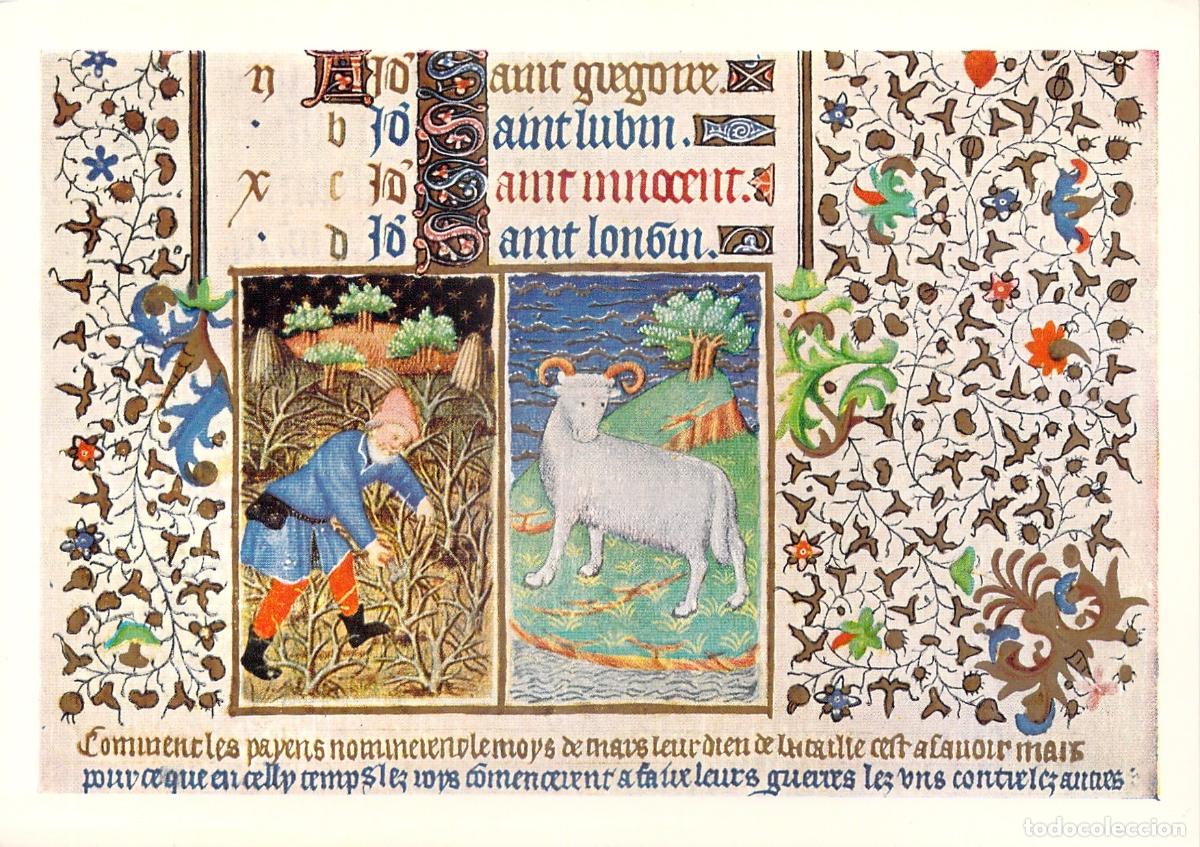 n A Id Saint gregoire.
· b Id Saint lubin.
x c Id Saint innocent.
· d Id Saint longin.
Comment les payens nommerent le moys de mars leur dieu de bataille cest a savoir mars
pour ce que en celly temps lez roys comencerent a faire leurs guerres lez uns contre lez autres
todocoleccion